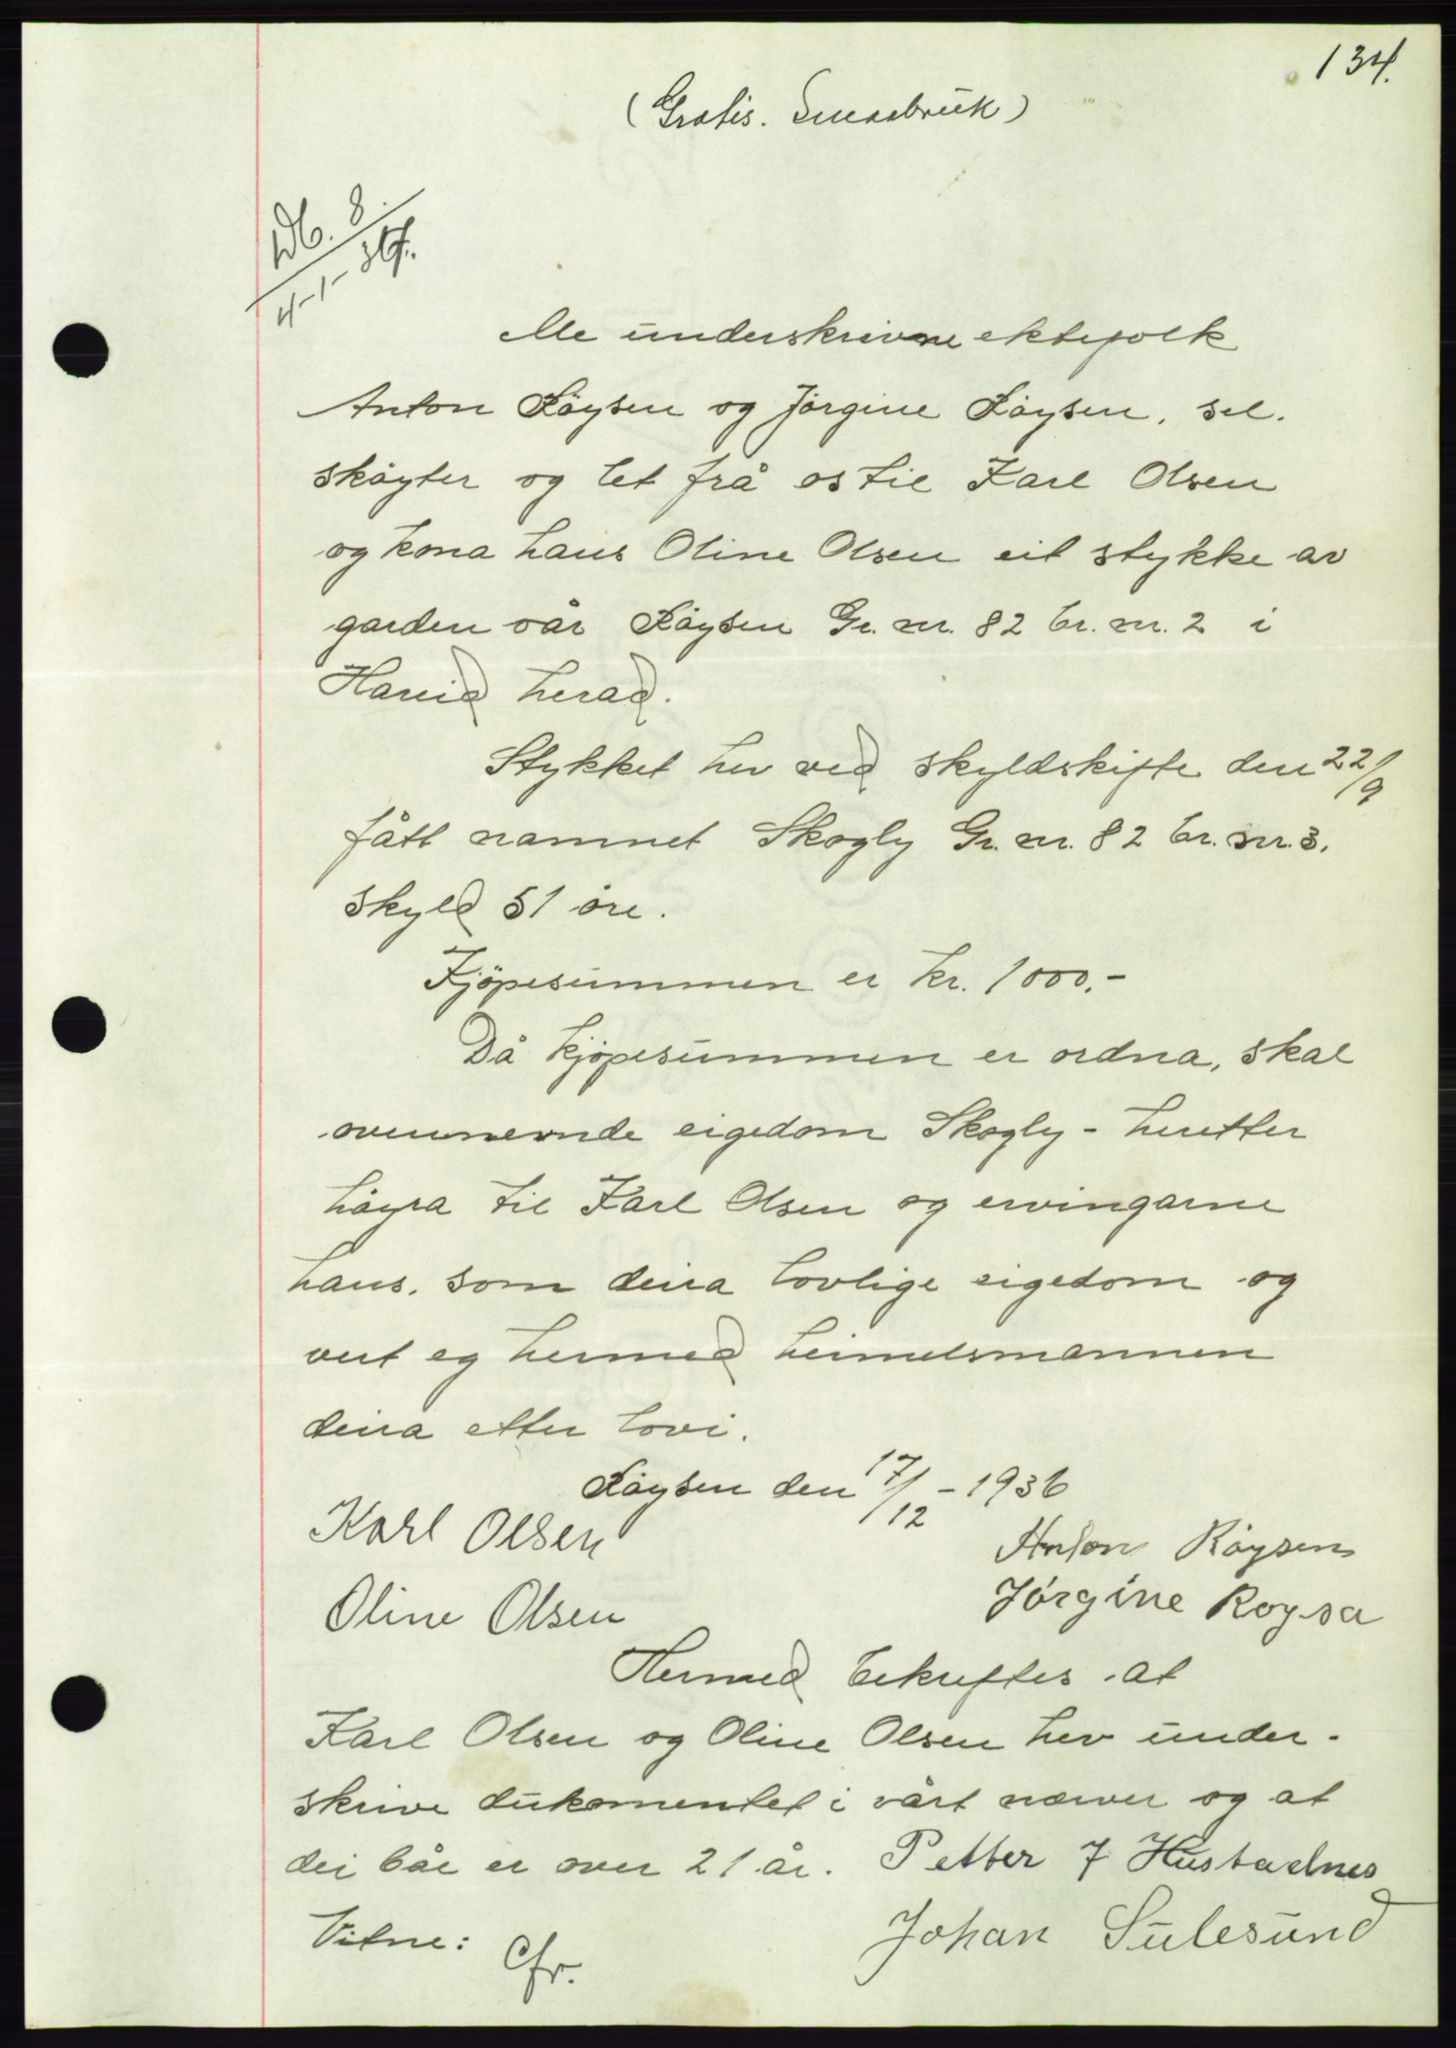 134.
(Gratis. Smaabruk)
Db. 8.
4-1-37.
Me underskrivne ektefolk
Anton Röysen og Jörgine Röysen, sel.
sköyter og let frå os til Karl Olsen
og kona hans Oline Olsen eit stykke av
garden vår Röysen Gr. nr. 82 br. nr. 2 i
Hareid herad.
Stykket hev ved skyldskifte den 22/9
fått namnet Skogly Gr. nr. 82 br. nr. 3.
skyld 51 öre.
Kjöpesummen er kr. 1000.-
Då kjöpesummen er ordna, skal
ovennevnde eigedom Skogly - heretter
höyra til Karl Olsen og ervingarne
hans, som deira lovlige eigedom og
vert eg hermed heimelsmannen
deira etter lovi.
Röysen den 17/12 - 1936
Karl Olsen
Anton Röysen
Oline Olsen
Jörgine Roysa
Hermed bekreftes at
Karl Olsen og Oline Olsen hev under-
skrive dukomentet i vårt nærver og at
dei båe er over 21 år. Petter J Hustadnes
Vitne:
Johan Sulesund
Cfr.